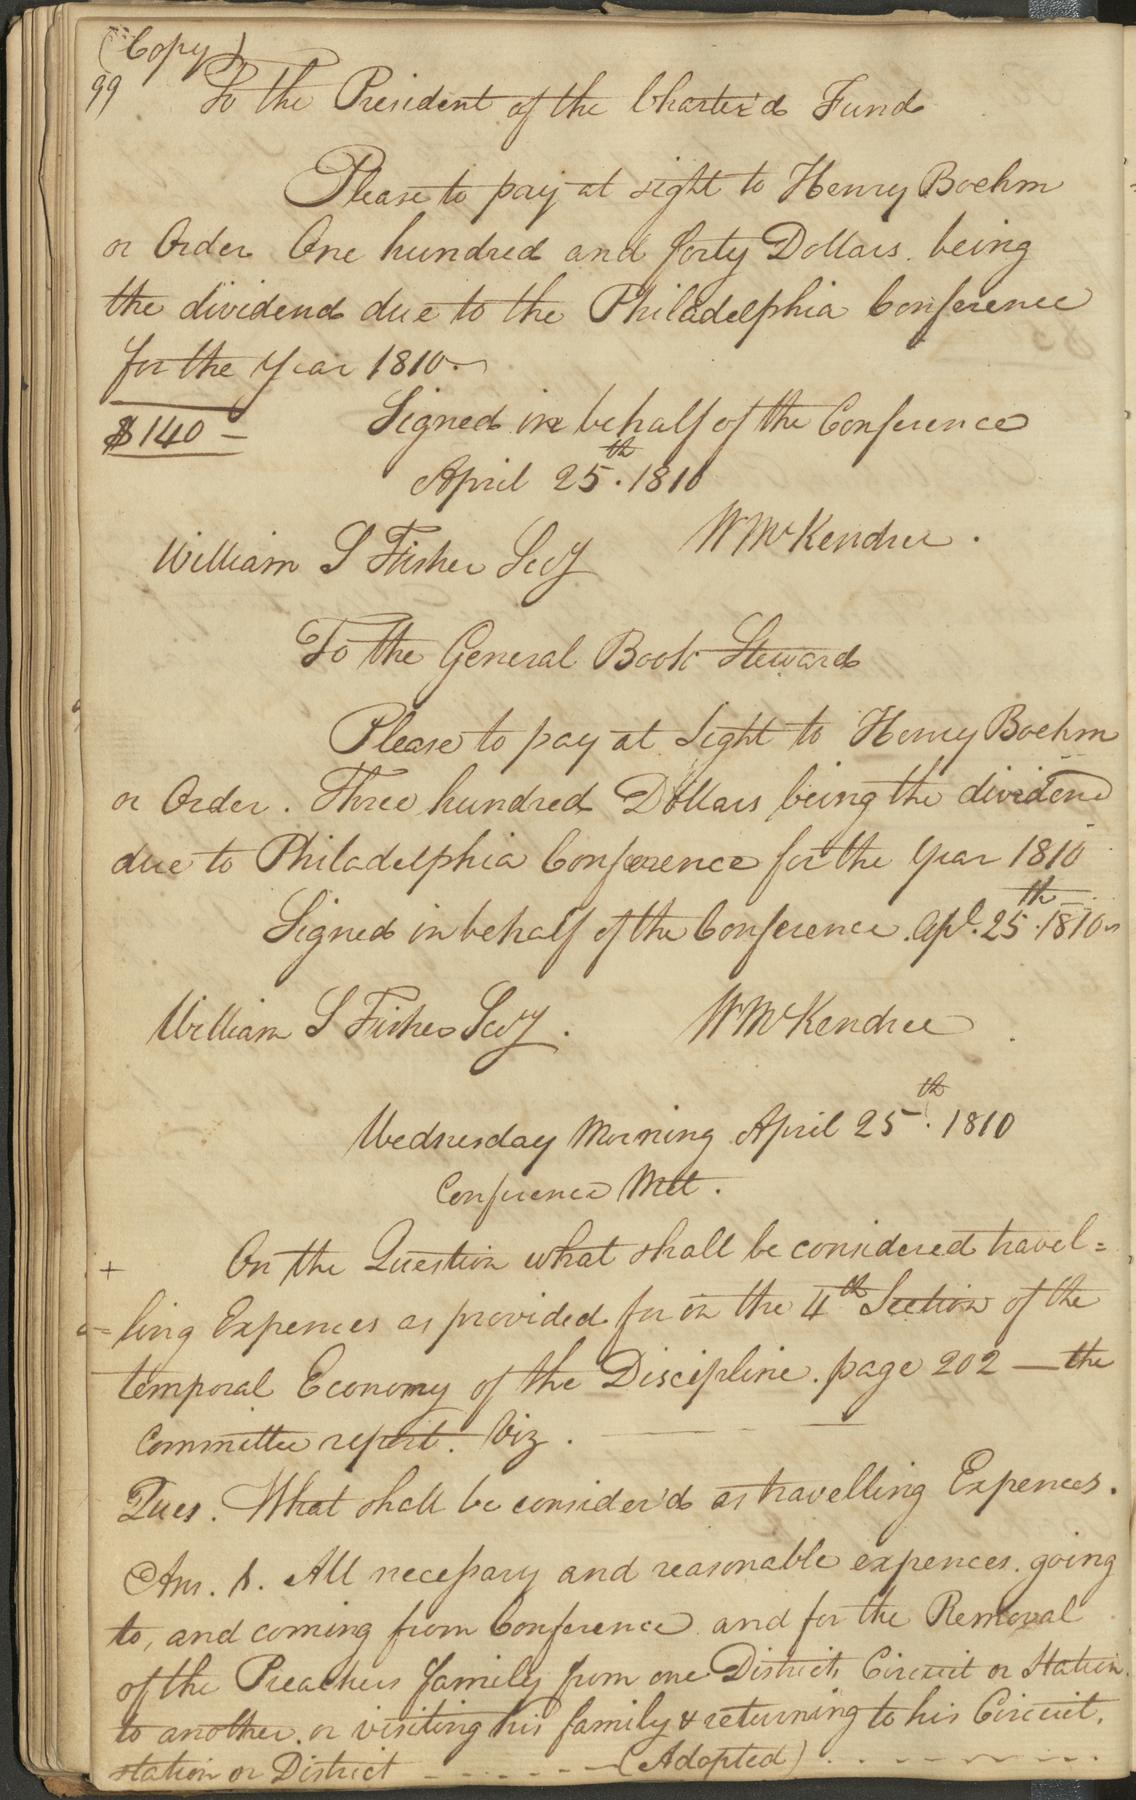 (Copy)
99 To the President of the Charter'd Fund
Please to pay at sight to Henry Boehm
or Order One hundred and forty Dollars being
the dividend due to the Philadelphia Conference
for the Year 1810.
$140 – Signed in behalf of the Conference
April 25th. 1810
William S Fisher Secy WMcKendree.
To the General Book Steward
Please to pay at Sight to Henry Boehm
or Order. Three hundred Dollars being the dividend
due to Philadelphia Conference for the Year 1810
Signed in behalf of the Conference. Apl. 25th. 1810
William S Fisher Secy. WMcKendree
Wednesday Morning April 25th. 1810
Conference Met.
+ On the Question what shall be considered travel=
ling Expences as provided for in the 4th Section of the
temporal Economy of the Discipline. page 202 — the
Committee report. Viz.
Ques. What shall be consider'd as travelling Expences.
Ans. 1. All necessary and reasonable expences. going
to, and coming from Conference and for the Removal
of the Preachers family from one District, Circuit or Station
to another. or visiting his family & returning to his Circuit,
station or District (Adopted)